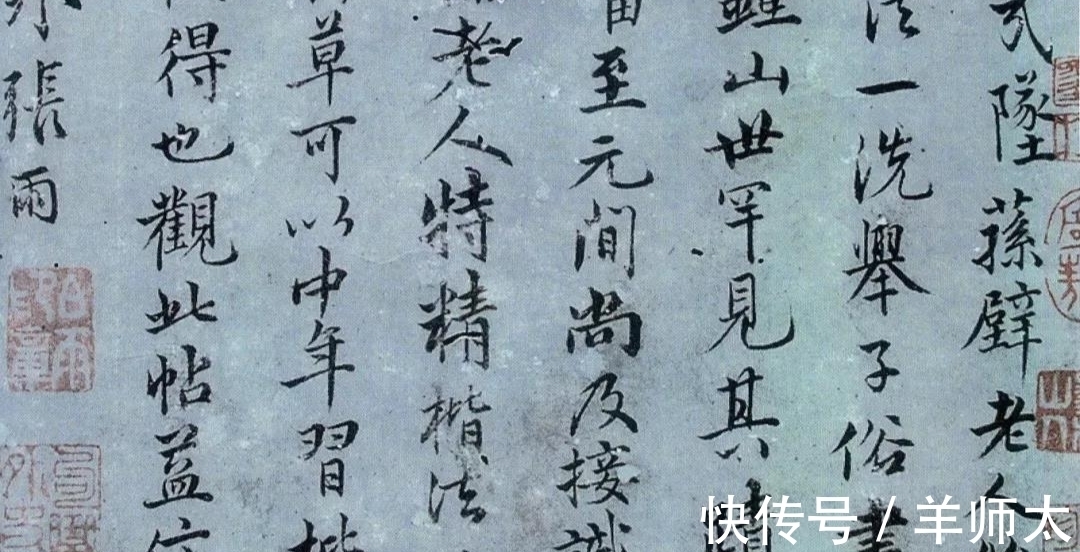 墜蓀壁老人
法一洗舉子俗書
山世罕見其
至元間尚及接識
老人特精楷法
草可以中年習楷
得也觀此帖益信
張雨
快传号 / 羊师太